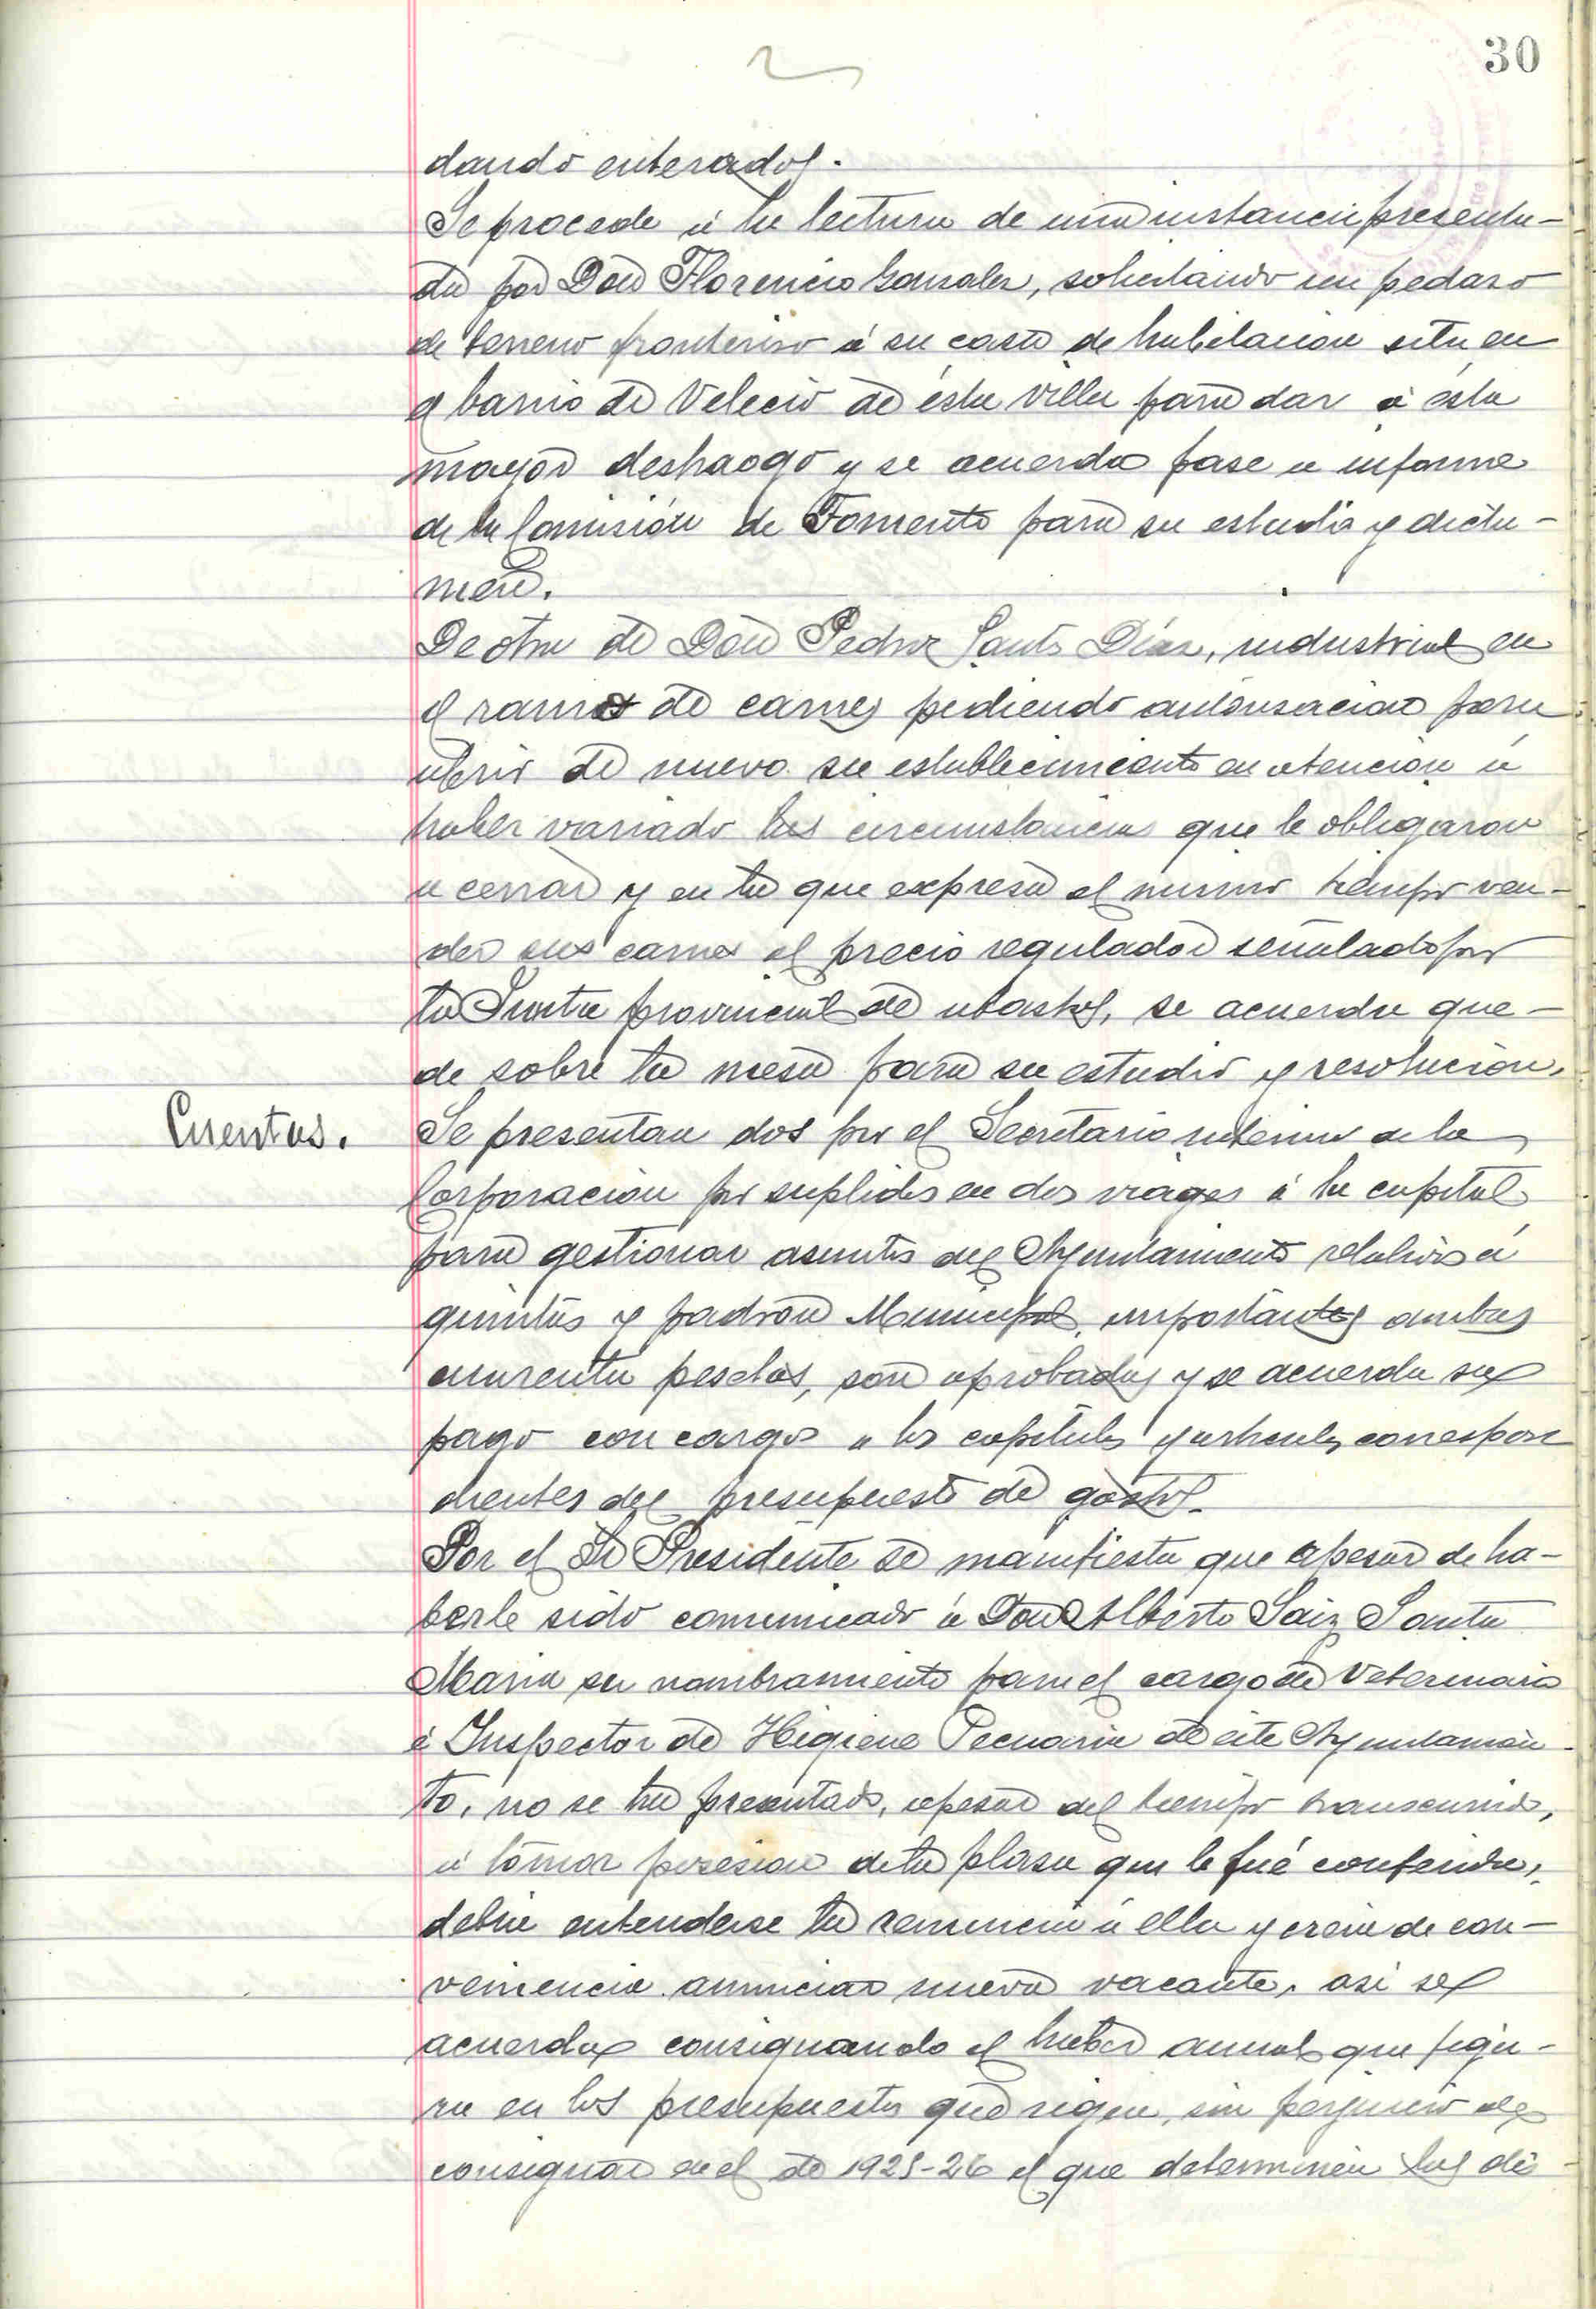 30
dando enterados.
Se procede á la lectura de una instancia presenta-
da por Don Florencio Gonzalez, solicitando un pedazo
de terreno fronterizo á su casa de habitacion sita en
el barrio de Velecio de ésta villa para dar á ésta
mayor deshaogo y se acuerda pase a informe
de la Comisión de Fomento para su estudio y dicta-
men.
De otra de Don Pedro Santos Diaz, industrial en
el ramo de carnes pidiendo autorizacion para
abrir de nuevo su establecimiento en atencion á
haber variado las circunstancias que le obligaron
a cerrar y en la que expresa al mismo tiempo ven-
der sus carnes al precio regulador señalado por
la Junta provincial de abastos, se acuerda que-
de sobre la mesa para su estudio y resolucion.
Cuentas.
Se presentan dos por el Secretario interino de la
Corporacion por suplidos en dos viages á la capital
para gestionar asuntos del Ayuntamiento relativos á
quintas y padron Municipal, importantes ambas
cuarenta pesetas, son aprobadas y se acuerda su
pago con cargo a los capitulos y articulos correspon
dientes del presupuesto de gastos.
Por el Sr Presidente se manifiesta que apesar de ha-
berle sido comunicado á Don Alberto Saiz Santa
Maria su nombramiento para el cargo de Veterinario
é Inspector de Higiene Pecuaria de este Ayuntamien-
to, no se ha presentado, apesar del tiempo transcurrido,
á tomar posesion de la plaza que le fué conferida,
debia entenderse la renuncia á ella y creia de con-
veniencia anunciar nueva vacante, asi se
acuerda consignando el haber anual que figu-
ra en los presupuestos que rigen, sin perjuicio de
consignar en el de 1925-26 el que determinen las di